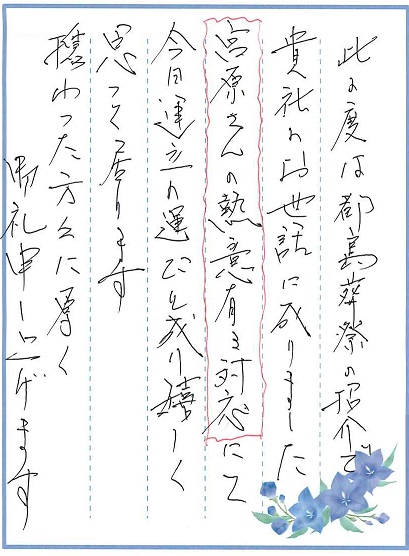 此の度は都島葬祭の紹介で
貴社のお世話に成りました
宮原さんの熱意有る対応にて
今日建立の運びと成り嬉しく
思って居ります
携わった方々に厚く
御礼申し上げます